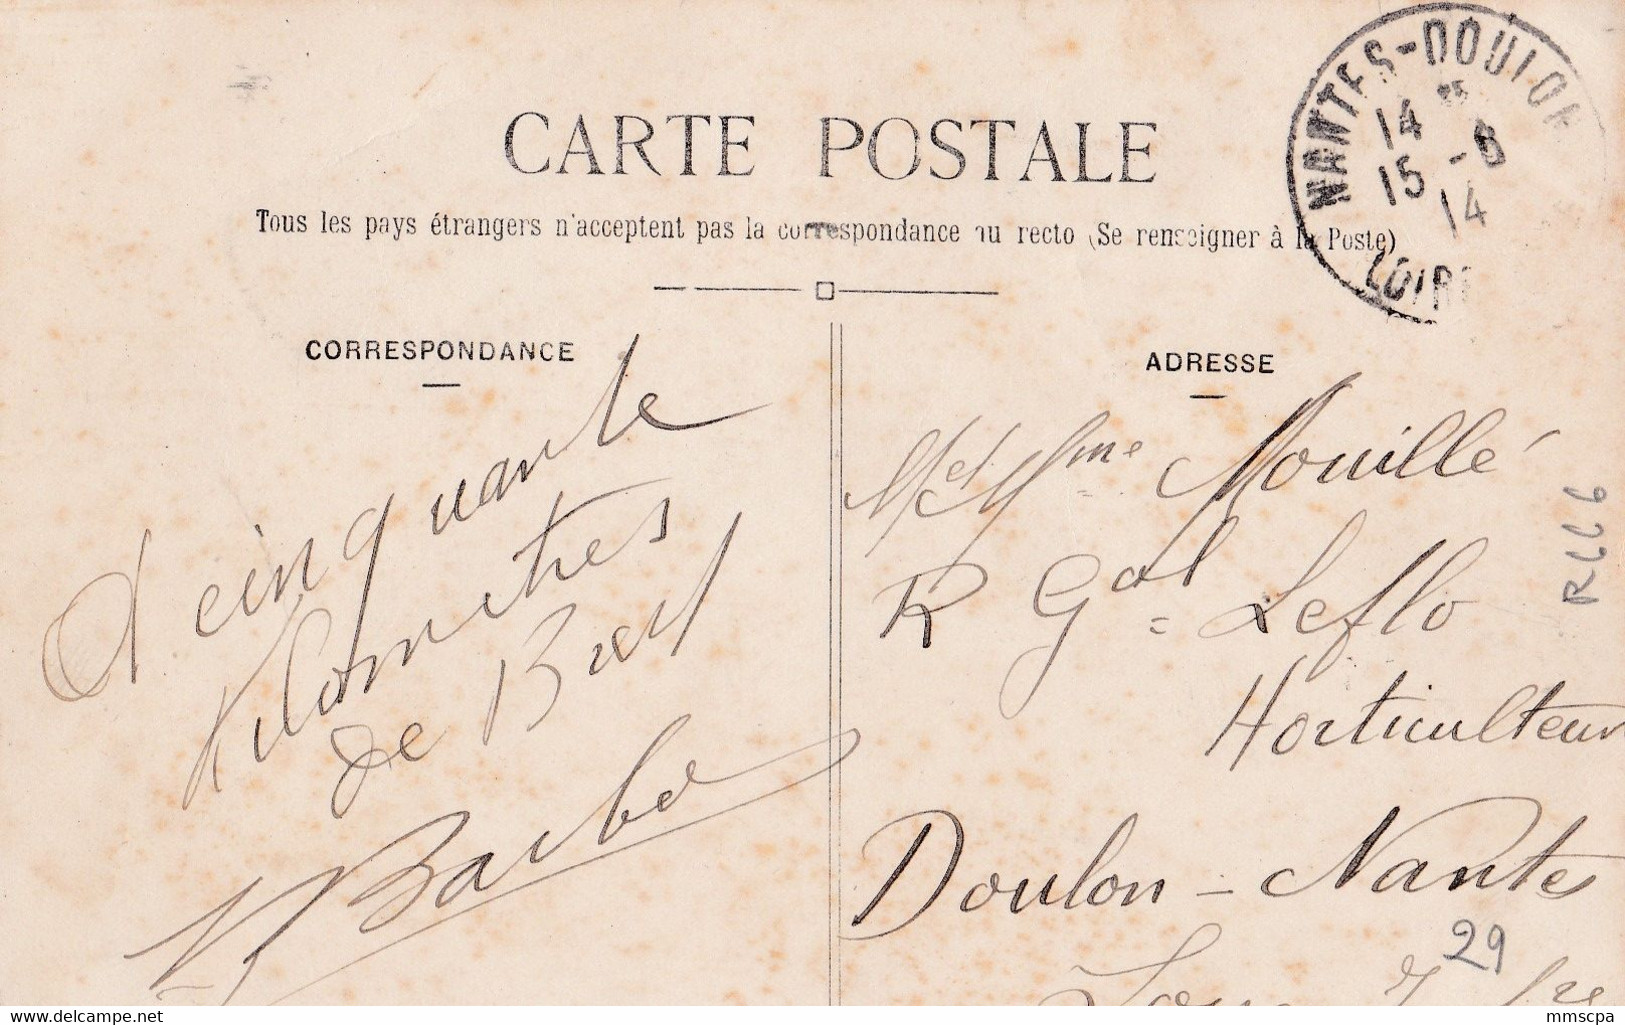 CARTE POSTALE
Tous les pays étrangers n'acceptent pas la correspondance au recto (Se renseigner à la Poste)
NANTES-DOULON
14
15 -8
14
LOIRE
CORRESPONDANCE
A cinquante
Kilomètres
de Brest
Barbe
ADRESSE
M et Mme Mouillé
R Gal Leflo
Horticulteur
Doulon - Nantes
29
Loire
RLL6
www.delcampe.net
mmscpa